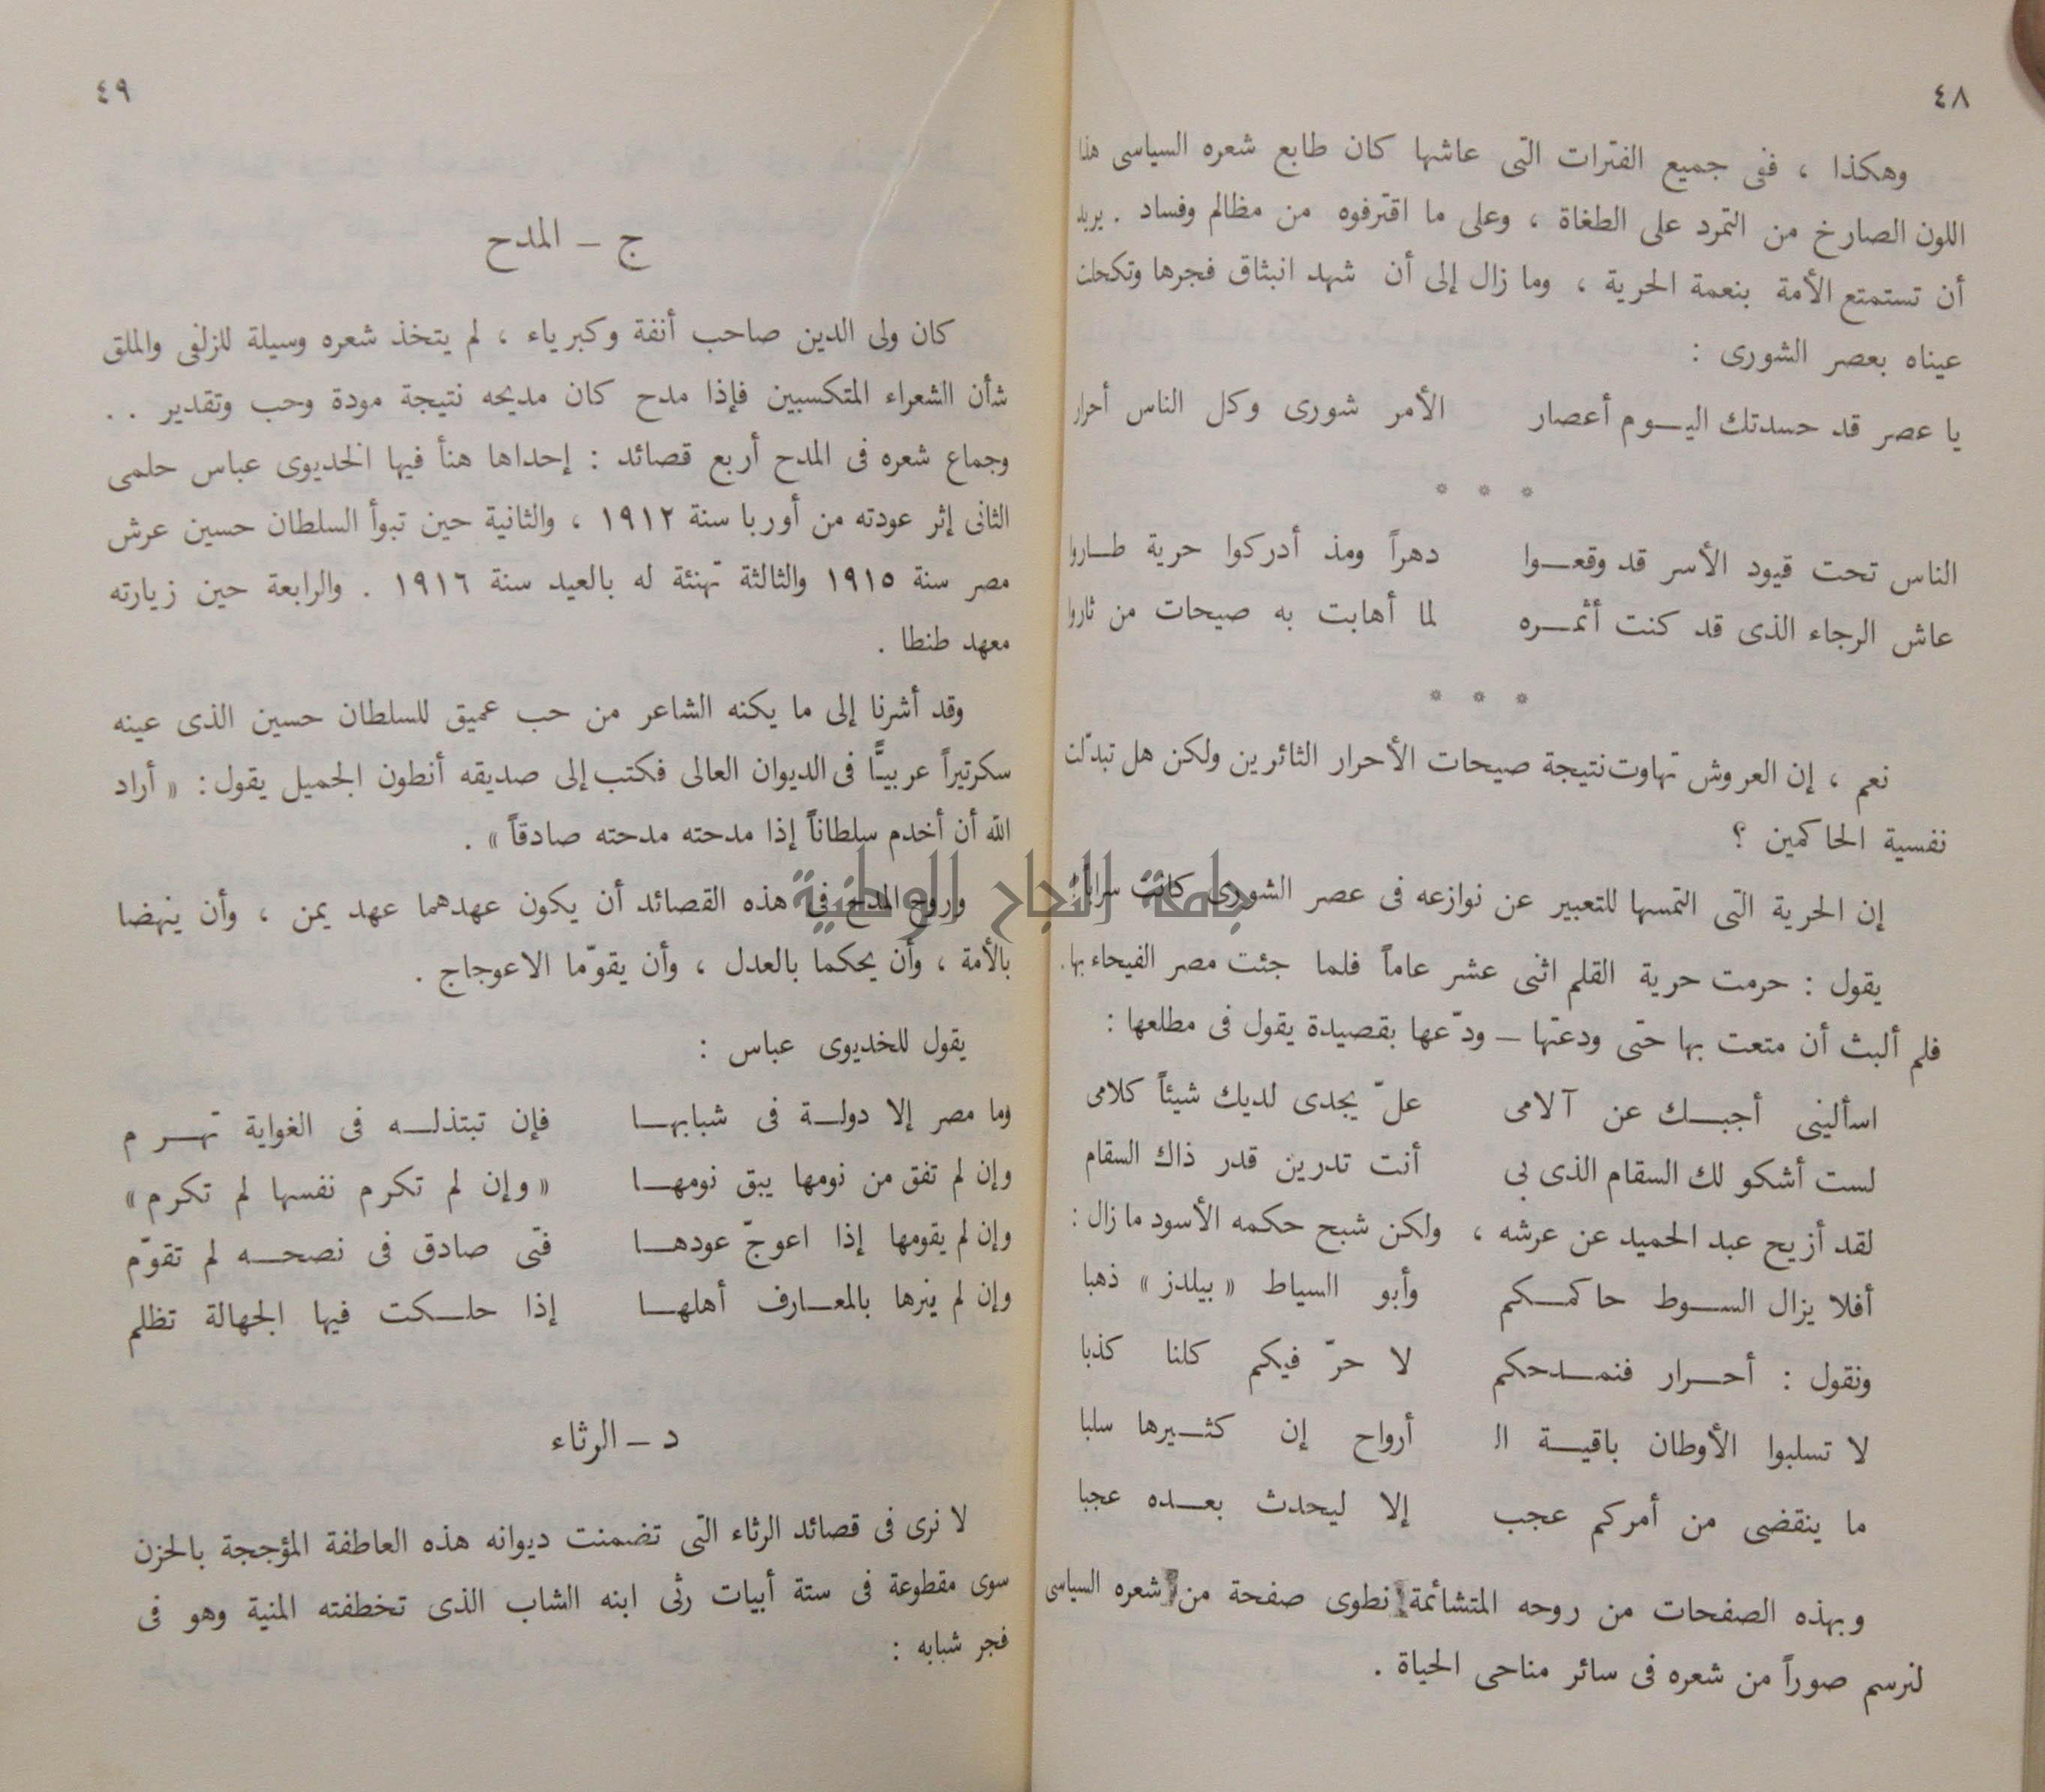 ٤٨
وهكذا ، ففى جميع الفترات التى عاشها كان طابع شعره السياسى هذا
اللون الصارخ من التمرد على الطغاة ، وعلى ما اقترفوه من مظالم وفساد . يريد
أن تستمتع الأمة بنعمة الحرية ، وما زال إلى أن شهد انبثاق فجرها وتكحلت
عيناه بعصر الشورى :
يا عصر قد حسدتك اليـوم أعصار الأمر شورى وكل الناس أحرار
* * *
الناس تحت قيود الأسر قد وقعـوا دهراً ومذ أدركوا حرية طـاروا
عاش الرجاء الذى قد كنت أثمـره لما أهابت به صيحات من ثاروا
* * *
نعم ، إن العروش تهاوت نتيجة صيحات الأحرار الثائرين ولكن هل تبدّلت
نفسية الحاكمين ؟
إن الحرية التى التمسها للتعبير عن نوازعه فى عصر الشورى كانت سراباً
يقول : حرمت حرية القلم اثنى عشر عاماً فلما جئت مصر الفيحاء بها .
فلم ألبث أن متعت بها حتى ودعتها — ودّعها بقصيدة يقول فى مطلعها :
اسألينى أجبـك عن آلامى علّ يجدى لديك شيئاً كلامى
لست أشكو لك السقام الذى بى أنت تدرين قدر ذاك السقام
لقد أزيح عبد الحميد عن عرشه ، ولكن شبح حكمه الأسود ما زال :
أفلا يزال السـوط حاكمـكم وأبو السياط « بيلدز » ذهبا
ونقول : أحـرار فنمـدحكم لا حرّ فيكم كلنا كذبا
لا تسلبوا الأوطان باقيـة الـ أرواح إن كثـيرها سلبا
ما ينقضى من أمركم عجب إلا ليحدث بعـده عجبا
وبهذه الصفحات من روحه المتشائمة نطوى صفحة من شعره السياسى
لنرسم صوراً من شعره فى سائر مناحى الحياة .
٤٩
ج — المدح
كان ولى الدين صاحب أنفة وكبرياء ، لم يتخذ شعره وسيلة للزلفى والملق
شأن الشعراء المتكسبين فإذا مدح كان مديحه نتيجة مودة وحب وتقدير . .
وجماع شعره فى المدح أربع قصائد : إحداها هنأ فيها الخديوى عباس حلمى
الثانى إثر عودته من أوربا سنة ١٩١٢ ، والثانية حين تبوأ السلطان حسين عرش
مصر سنة ١٩١٥ والثالثة تهنئة له بالعيد سنة ١٩١٦ . والرابعة حين زيارته
معهد طنطا .
وقد أشرنا إلى ما يكنه الشاعر من حب عميق للسلطان حسين الذى عينه
سكرتيراً عربيًّا فى الديوان العالى فكتب إلى صديقه أنطون الجميل يقول : « أراد
الله أن أخدم سلطاناً إذا مدحته مدحته صادقاً » .
وروح المدح فى هذه القصائد أن يكون عهدهما عهد يمن ، وأن ينهضا
بالأمة ، وأن يحكما بالعدل ، وأن يقوّما الاعوجاج .
جامعة النجاح الوطنية
يقول للخديوى عباس :
وما مصر إلا دولـة فى شبابهـا فإن تبتذلـه فى الغواية تهـرم
وإن لم تفق من نومها يبق نومهـا « وإن لم تكرم نفسها لم تكرم »
وإن لم يقومها إذا اعوجّ عودهـا فتى صادق فى نصحـه لم تقوّم
وإن لم ينرها بالمعـارف أهلهـا إذا حلـكت فيها الجهالة تظلم
د — الرثاء
لا نرى فى قصائد الرثاء التى تضمنت ديوانه هذه العاطفة المؤججة بالحزن
سوى مقطوعة فى ستة أبيات رثى ابنه الشاب الذى تخطفته المنية وهو فى
فجر شبابه :